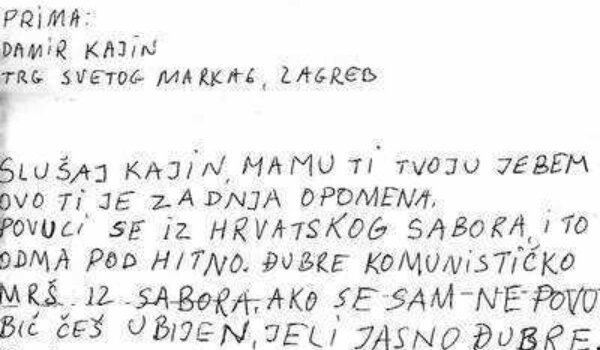 PRIMA:
DAMIR KAJIN
TRG SVETOG MARKA 6, ZAGREB
SLUŠAJ KAJIN, MAMU TI TVOJU JEBEM
OVO TI JE ZADNJA OPOMENA.
POVUCI SE IZ HRVATSKOG SABORA, I TO
ODMA POD HITNO. ĐUBRE KOMUNISTIČKO
MRŠ IZ SABORA. AKO SE SAM NE POVO
BIĆ ČEŠ UBIJEN, JELI JASNO ĐUBRE.